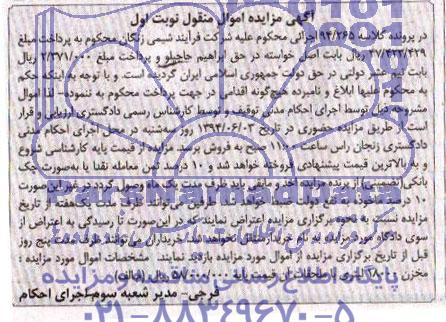 آگهی مزایده اموال منقول نوبت اول
در پرونده کلاسه ۹۴/۲۶۵ اجرائی محکوم علیه شرکت فرآیند شیمی زنگان محکوم به پرداخت مبلغ
۳۷/۴۲۳/۴۲۹ ریال بابت اصل خواسته در حق ابراهیم حاجیلو و پرداخت مبلغ ۲/۳۷۱/۰۰۰ ریال
بابت نیم عشر دولتی در حق دولت جمهوری اسلامی ایران گردیده است. و با توجه به اینکه حکم
به محکوم علیها ابلاغ و نامبرده هیچ‌گونه اقدامی در جهت پرداخت محکوم به ننموده - لذا اموال
مشروحه ذیل توسط اجرای احکام مدنی توقیف و توسط کارشناس رسمی دادگستری ارزیابی و قرار
است از طریق مزایده حضوری در تاریخ ۱۳۹۴/۰۶/۰۳ روز سه‌شنبه در محل اجرای احکام مدنی
دادگستری زنجان راس ساعت ۱۱:۰۰ صبح به فروش برسد مزایده از قیمت پایه کارشناسی شروع
و به بالاترین قیمت پیشنهادی فروخته خواهد شد و ۱۰ درصد ثمن معامله نقدا یا به‌صورت چک
بانکی (تضمینی) از برنده مزایده اخذ و مابقی باید ظرف مدت یک ماه وصول گردد در غیر این صورت
۱۰ درصد ماخوذه به نفع دولت ضبط خواهد شد. طرفین می‌توانند ظرف مدت یک هفته از تاریخ
مزایده نسبت به نحوه برگزاری مزایده اعتراض نمایند که در این‌صورت تا رسیدگی به اعتراض از
سوی دادگاه مورد مزایده به نام خریدار منتقل نخواهد شد. خریداران می‌توانند ظرف مدت پنج روز
قبل از تاریخ برگزاری مزایده از اموال مورد مزایده بازدید نمایند. مشخصات اموال مورد مزایده :
مخزن لیتری با ملحقات آن قیمت پایه ریال
فرجی- مدیر شعبه سوم اجرای احکام
پایگاه اطلاع رسانی مناقصه و مزایده
۰۲۱-۸۸۳۴۹۶۷۰-۵